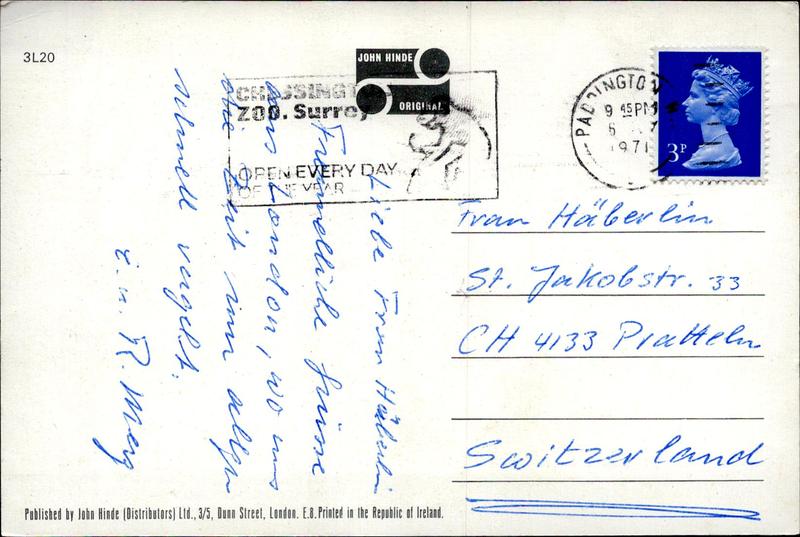 3L20
JOHN HINDE
ORIGINAL
CHESSINGTON
ZOO. Surrey
OPEN EVERY DAY
OF THE YEAR
PADDINGTON
9 45PM
6
1971
3P
Liebe Frau Häberlin
Freundliche Grüsse
aus London, wo uns
die Zeit nur allzu
schnell vergeht.
R. Merz
Frau Häberlin
St. Jakobstr. 33
CH 4133 Pratteln
Switzerland
Published by John Hinde (Distributors) Ltd., 3/5, Dunn Street, London. E.8. Printed in the Republic of Ireland.